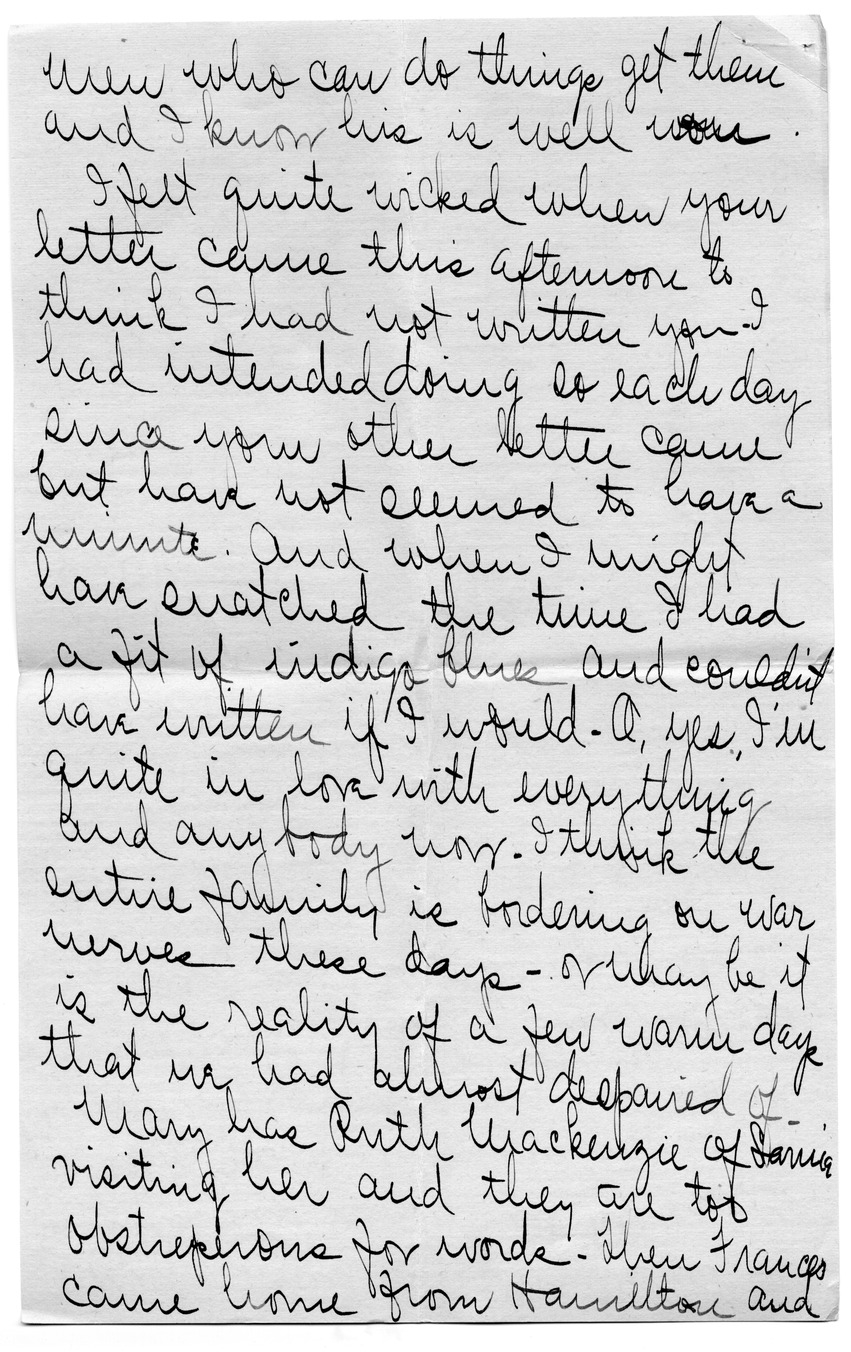 men who can do things get them
and I know his is well won.
I felt quite wicked when your
letter came this afternoon to
think I had not written you - I
had intended doing so each day
since your other letter came
but have not seemed to have a
minute. And when I might
have snatched the time I had
a fit of indigo blues and couldn't
have written if I would - O, yes, I'm
quite in love with everything
and anybody now. I think the
entire family is bordering on war
nerves these days - or may be it
is the reality of a few warm days
that we had almost despaired of -
Mary has Ruth Mackenzie of Sarnia
visiting her and they are too
obstreperous for words - Then Frances
came home from Hamilton and